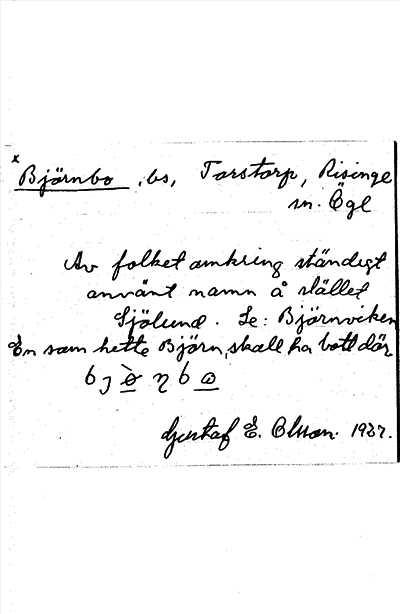 x Björnbo, bs, Torstorp, Risinge
sn. Ögl
Av folket omkring ständigt
använt namn å stället
Sjölund. Se: Björnviken
En som hette Björn, skall ha bott där
Gustaf E. Olsson. 1927.